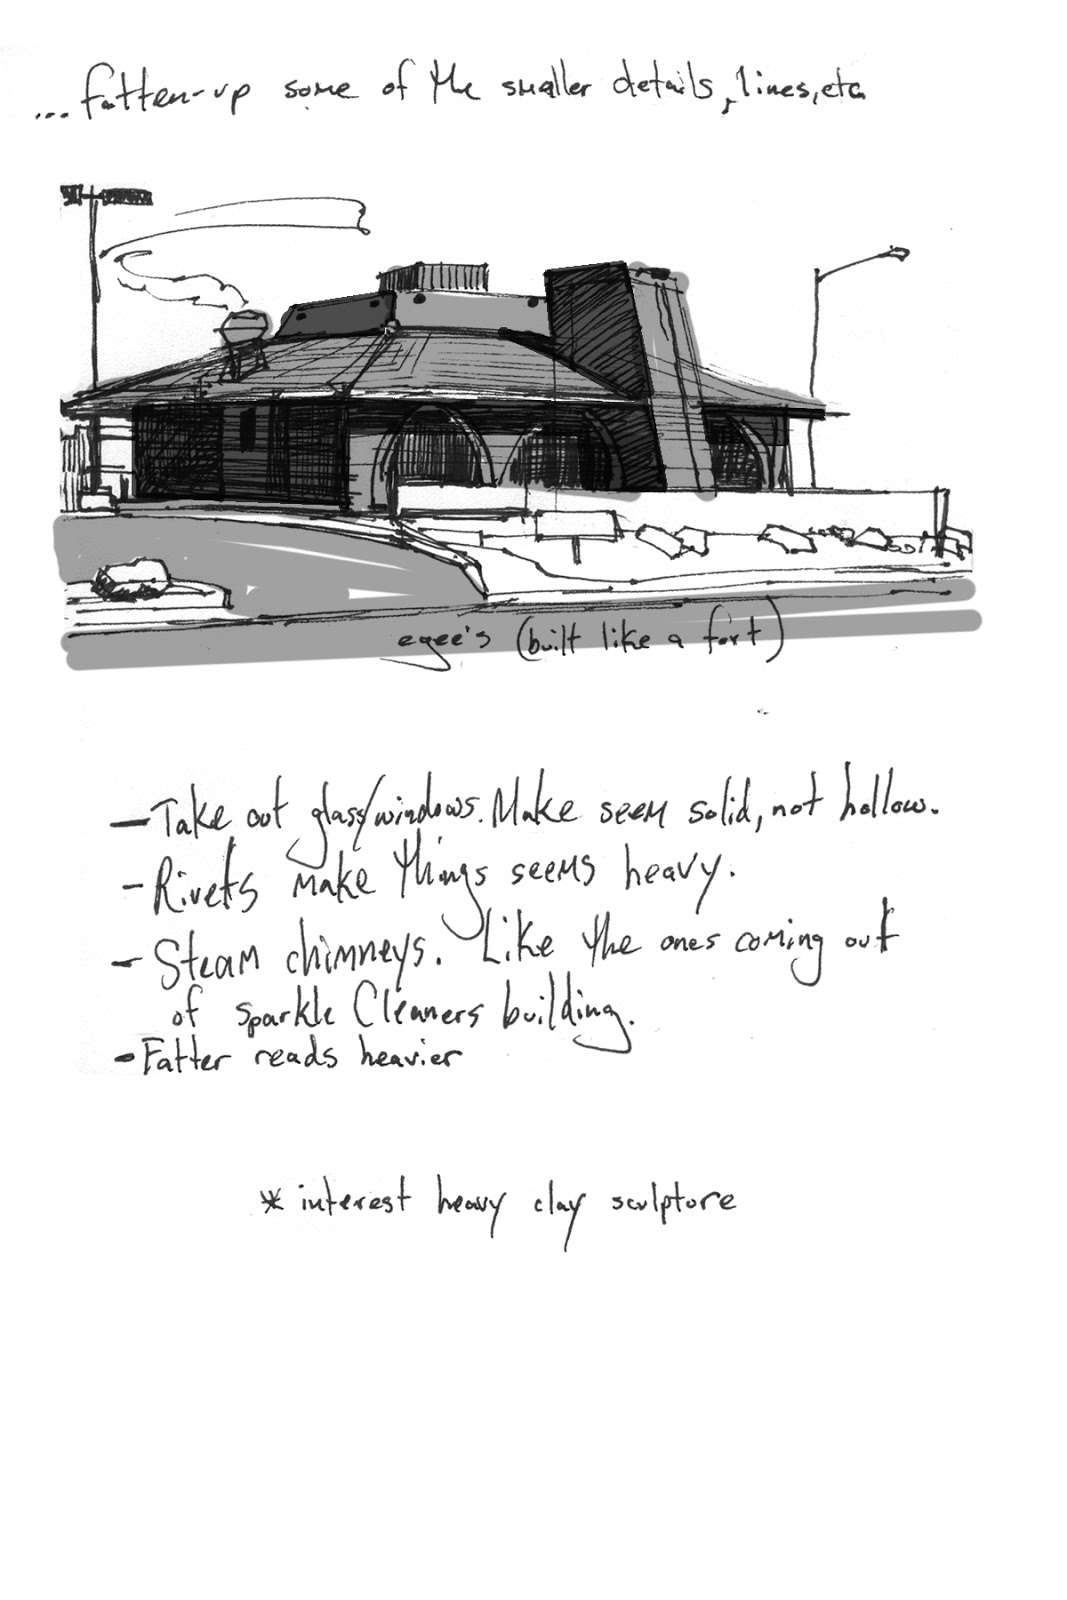 ... fatten-up some of the smaller details, lines, etc
egee's (built like a fort)
- Take out glass/windows. Make seem solid, not hollow.
- Rivets make things seems heavy.
- Steam chimneys. Like the ones coming out
of sparkle Cleaners building.
- Fatter reads heavier
* interest heavy clay sculpture